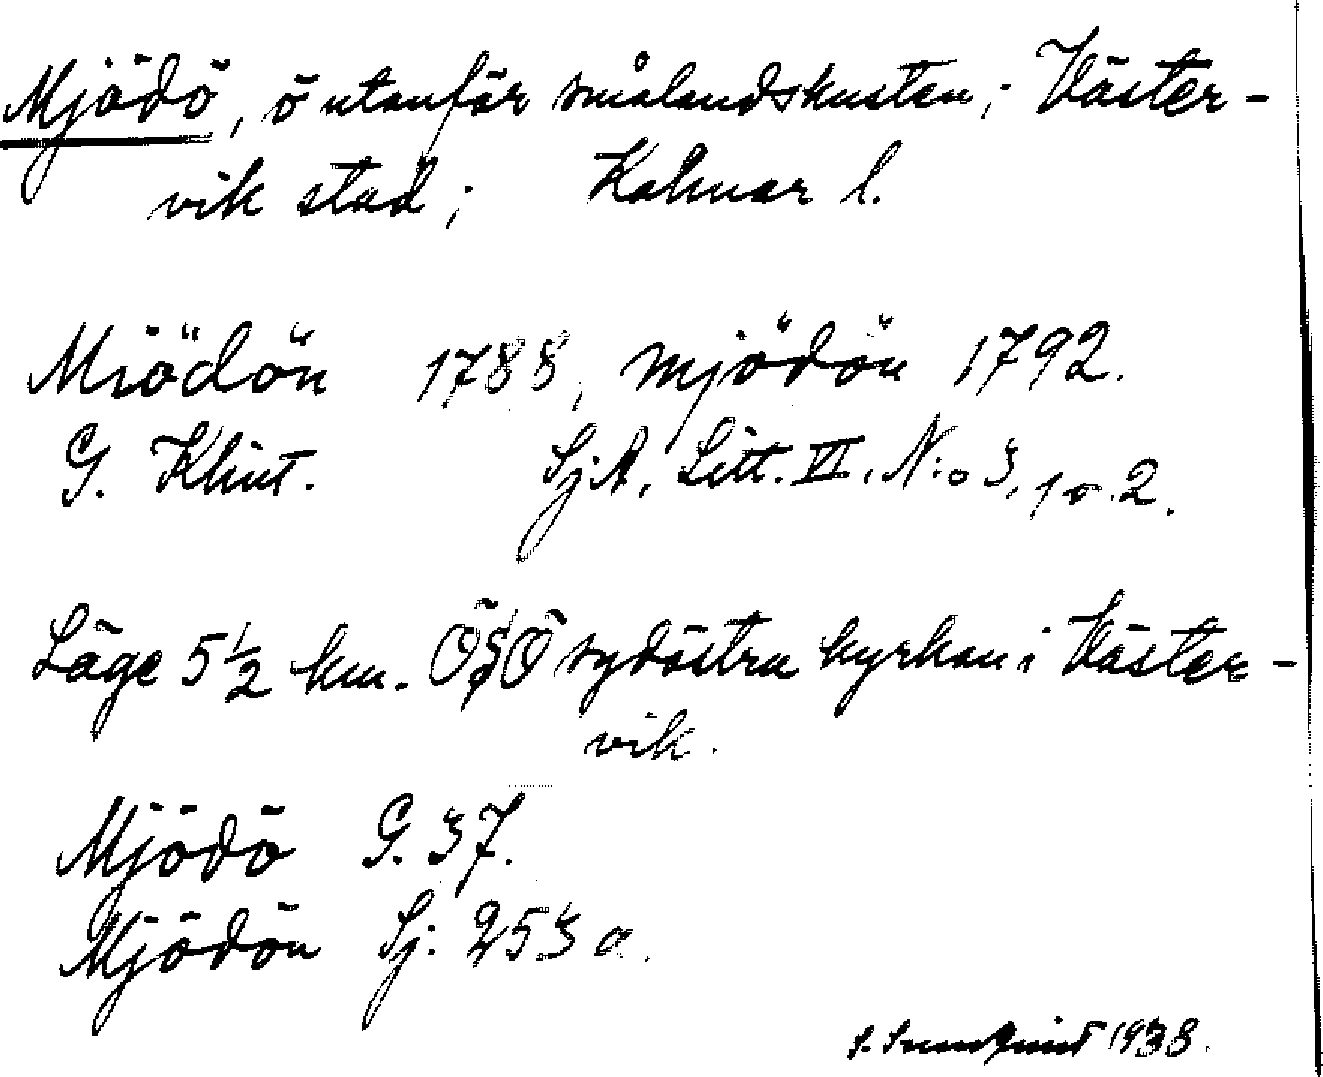 Mjödö, ö utanför smålandskusten; Väster-
vik stad; Kalmar l.
Miödön 1788, mjödön 1792.
G. Klint. Sj:A, Litt. VI, N:o 3, 1 o. 2.
Läge 5½ km. OSO sydöstra kyrkan i Väster-
vik.
Mjödö G. 37.
Mjödön Sj: 253 a.
1938.